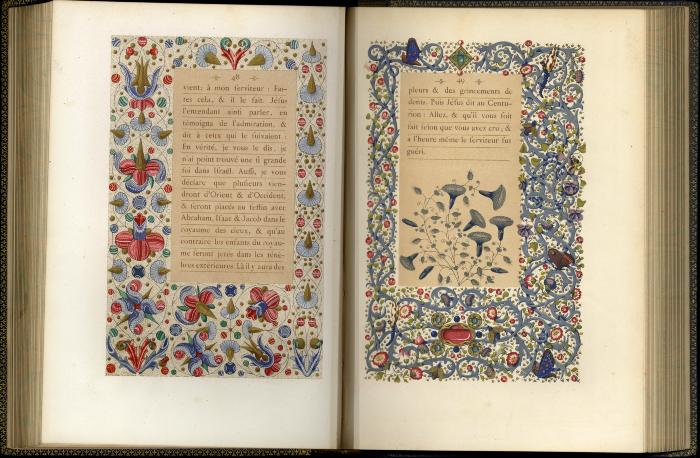 48
vient; à mon ſerviteur : Fai-
tes cela, & il le fait. Jéſus
l'entendant ainſi parler, en
témoigna de l'admiration, &
dit à ceux qui le ſuivaient :
En vérité, je vous le dis, je
n'ai point trouvé une ſi grande
foi dans Iſraël. Auſſi, je vous
déclare que pluſieurs vien-
dront d'Orient & d'Occident,
& ſeront placés au feſtin avec
Abraham, Iſaac & Jacob dans le
royaume des cieux, & qu'au
contraire les enfants du royau-
me ſeront jetés dans les ténè-
bres extérieures. Là il y aura des
49
pleurs & des grincements de
dents. Puis Jéſus dit au Centu-
rion : Allez, & qu'il vous ſoit
fait ſelon que vous avez cru; &
à l'heure même le ſerviteur fut
guéri.